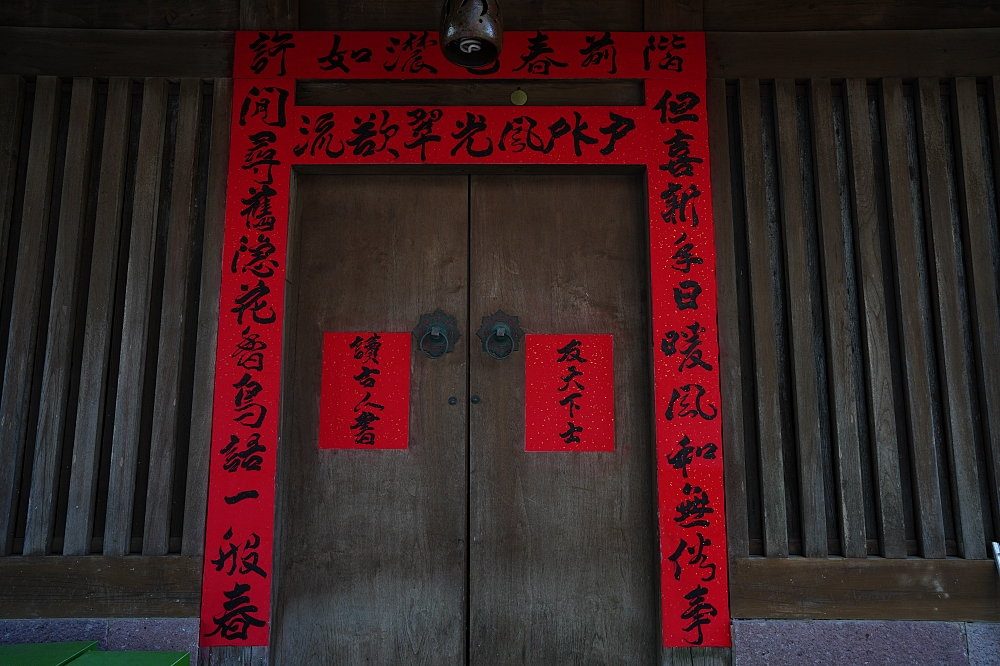 階前春色濃如許
戶外風光翠欲流
但喜新年日暖風和無俗事
閒尋舊隱花香鳥語一般春
友天下士
讀古人書